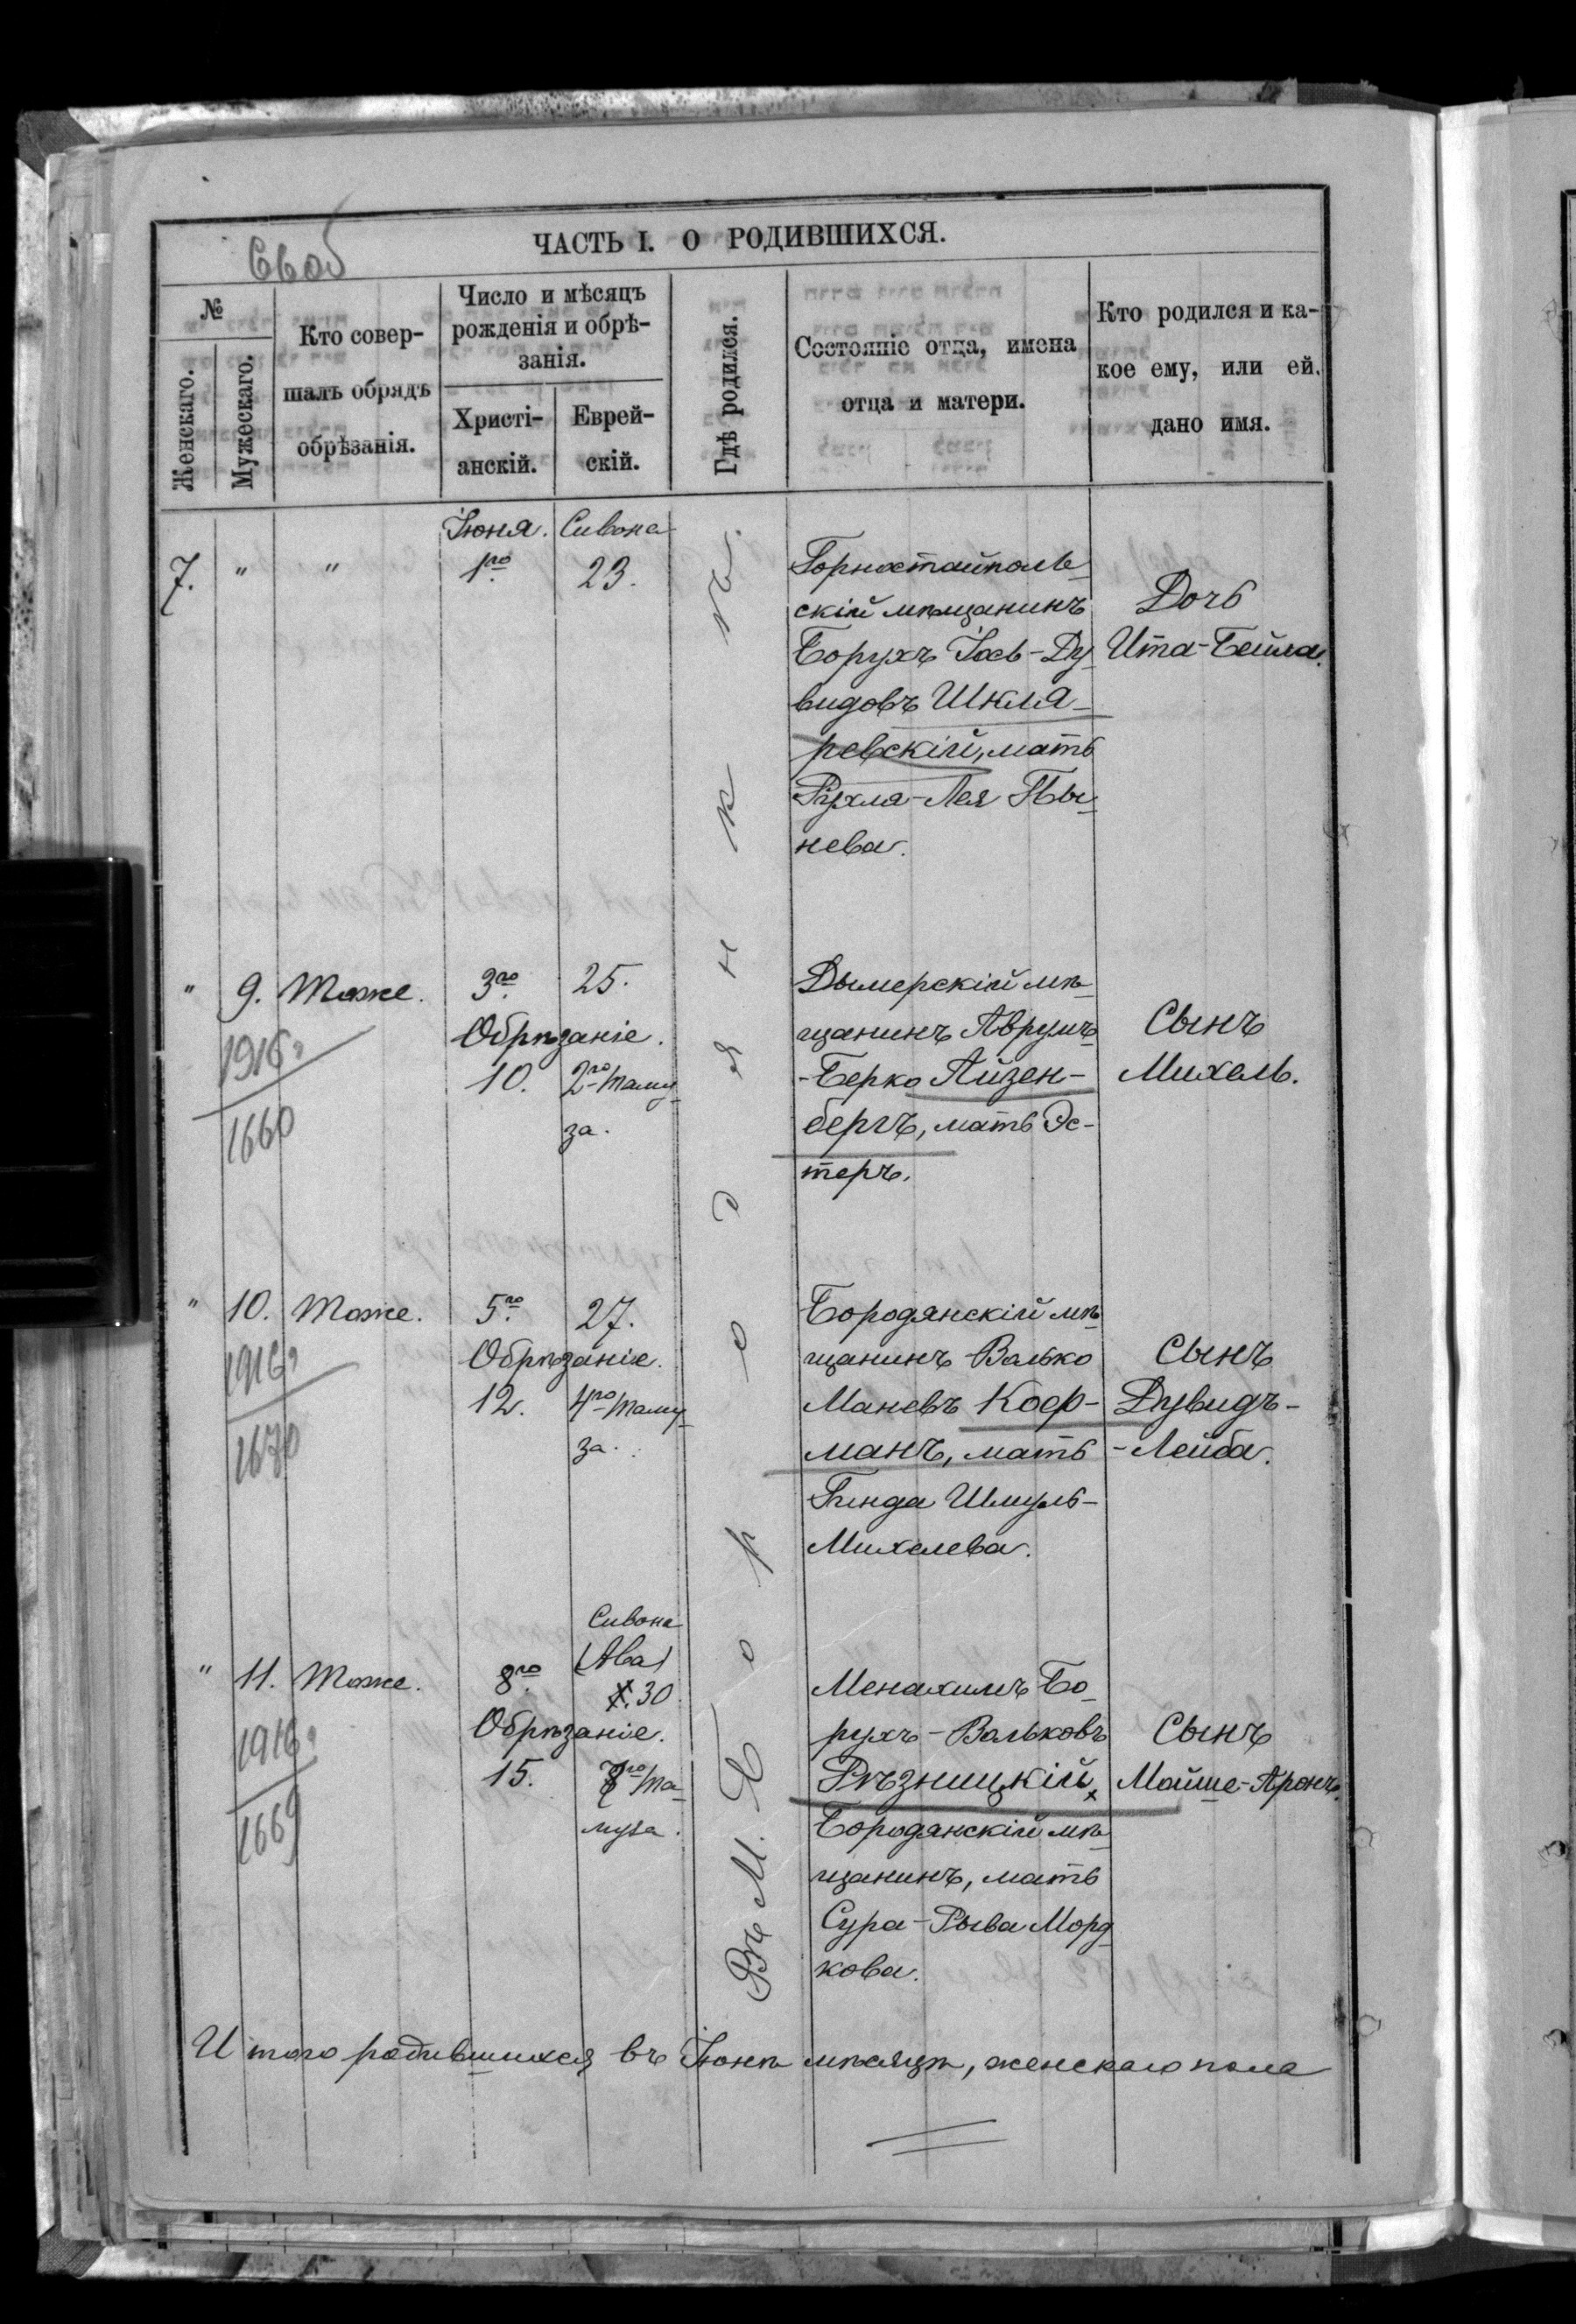 66об
ЧАСТЬ I. О РОДИВШИХСЯ.
№
Женскаго.
Мужескаго.
Кто совер-
шалъ обрядъ
обрѣзанія.
Число и мѣсяцъ
рожденія и обрѣ-
занія.
Христі-
анскій.
Еврей-
скій.
Гдѣ родился.
Состояніе отца, имена
отца и матери.
Кто родился и ка-
кое ему, или ей.
дано имя.
Въ М. Бородянкѣ.
Іюня. Сивона
7. " " 1го 23.
Горностайполь-
скій мѣщанинъ
Борухъ Іось-Ду-
видовъ Шкля-
ревскій, мать
Рухля-Лея
нева.
Дочь
Ита-Бейла.
" 9. Тоже. 3го 25.
Обрѣзаніе.
10. 2го Таму-
за.
1916
1660
Дымерскій мѣ-
щанинъ Аврумъ-
-Берко Айзен-
бергъ, мать Эс-
теръ.
Сынъ
Михель.
" 10. Тоже. 5го 27.
Обрѣзаніе.
12. 4го Таму-
за.
1916
1670
Бородянскій мѣ-
щанинъ Валько
Маневъ Коф-
манъ, мать
Гинда Шмуль-
Михелева.
Сынъ
Дувидъ-
-Лейба.
Сивона
(Ава)
" 11. Тоже. 8го 30
Обрѣзаніе.
15. 7го Та-
муза.
1916
1669
Менахимъ Бо-
рухъ-Вальковъ
Рѣзницкій,
Бородянскій мѣ-
щанинъ, мать
Сура-Рыва Морд-
кова.
Сынъ
Мойше-Аронъ.
Итого родившихся въ Іюнѣ мѣсяцѣ, женскаго пола